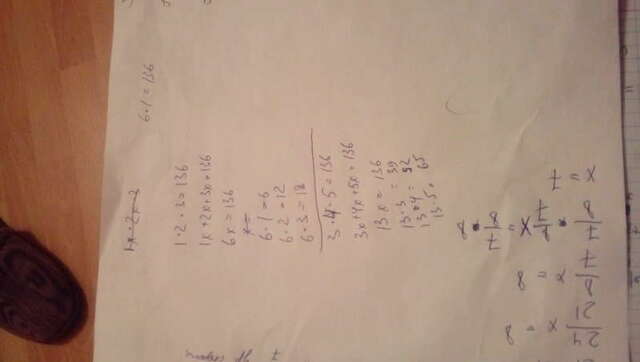 6·1=136
1·2·3=136
1x+2x+3x=136
6x=136
6·1=6
6·2=12
6·3=18
3·4·5=136
3x+4x+5x=136
13x=136
13·3=39
13·4=52
13·5=65
24/21 x = 8
8/7 x = 8
7/8 · 8/7 x = 7/8 · 8
x = 7